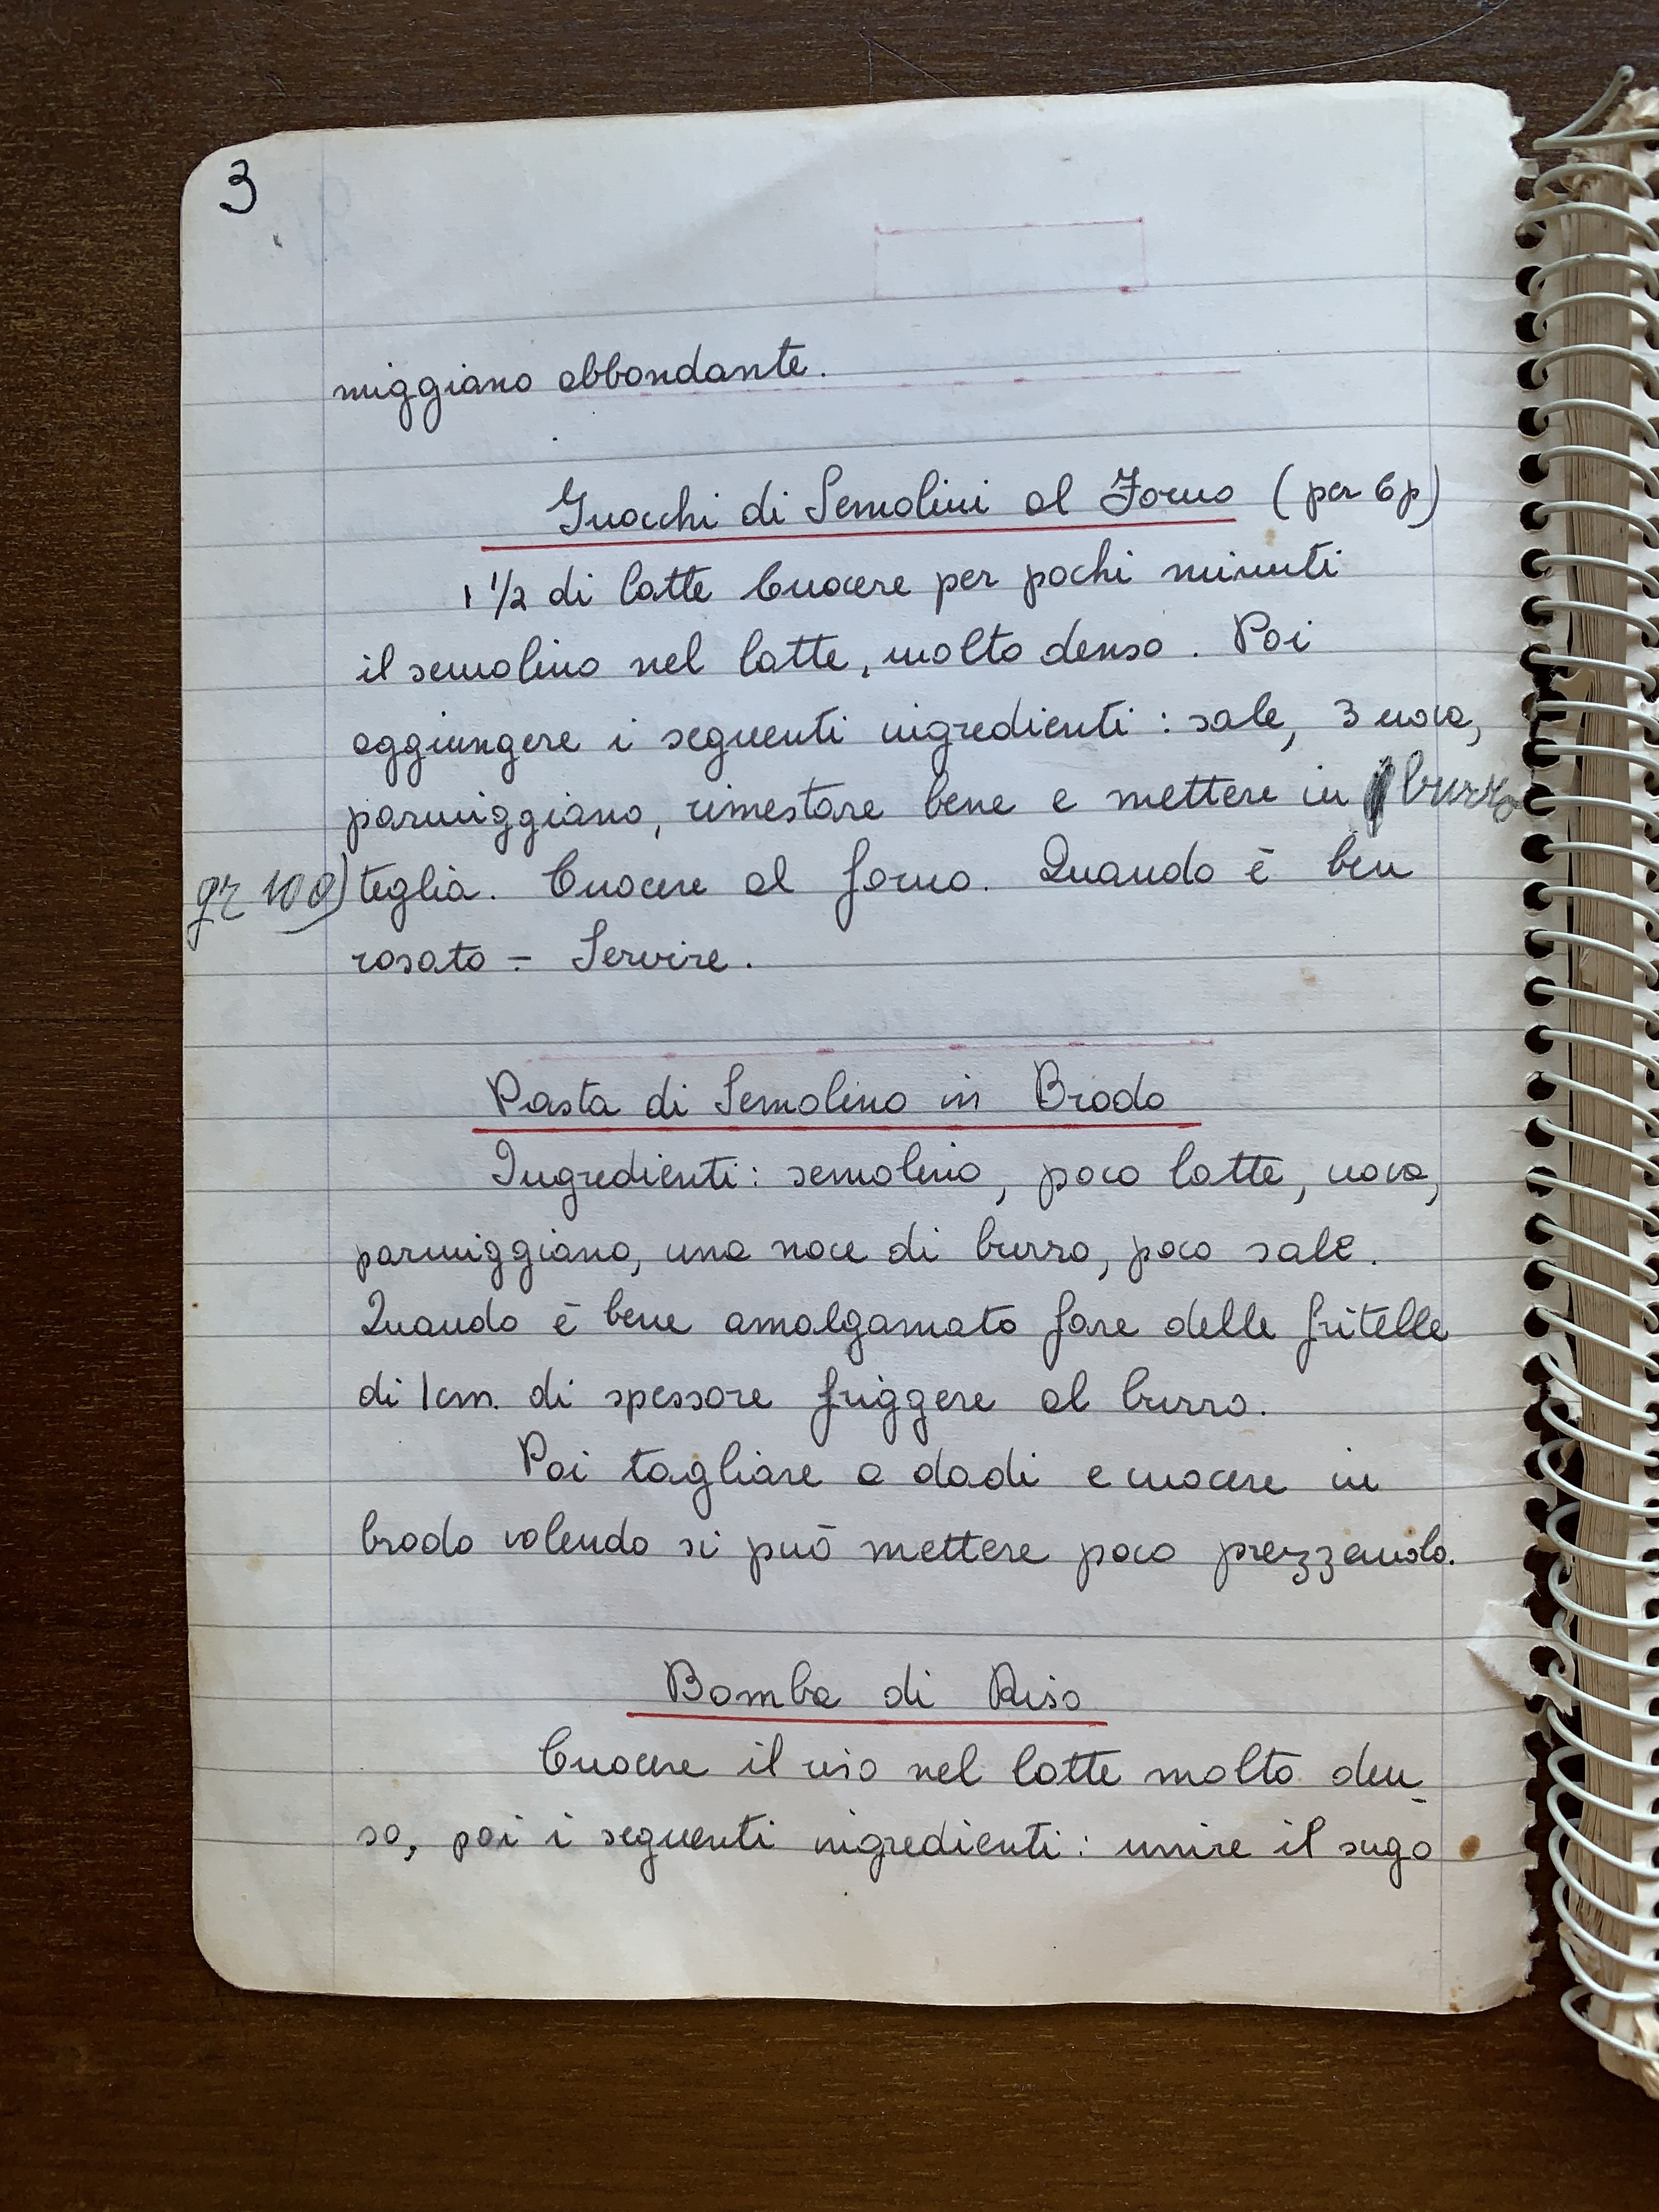 3
miggiano abbondante.
Gnocchi di Semolini al Forno (per 6 p)
1 1/2 di latte Cuocere per pochi minuti
il semolino nel latte, molto denso. Poi
aggiungere i seguenti ingredienti: sale, 3 uova,
parmiggiano, rimestare bene e mettere in burro
gr 100) teglia. Cuocere al forno. Quando è ben
rosato - Servire.
Pasta di Semolino in Brodo
Ingredienti: semolino, poco latte, uova,
parmiggiano, una noce di burro, poco sale.
Quando è bene amalgamato fare delle fritelle
di 1 cm. di spessore friggere al burro.
Poi tagliare a dadi e cuocere in
brodo volendo si può mettere poco prezzemolo.
Bomba di Riso
Cuocere il riso nel latte molto den_
so, poi i seguenti ingredienti: unire il sugo